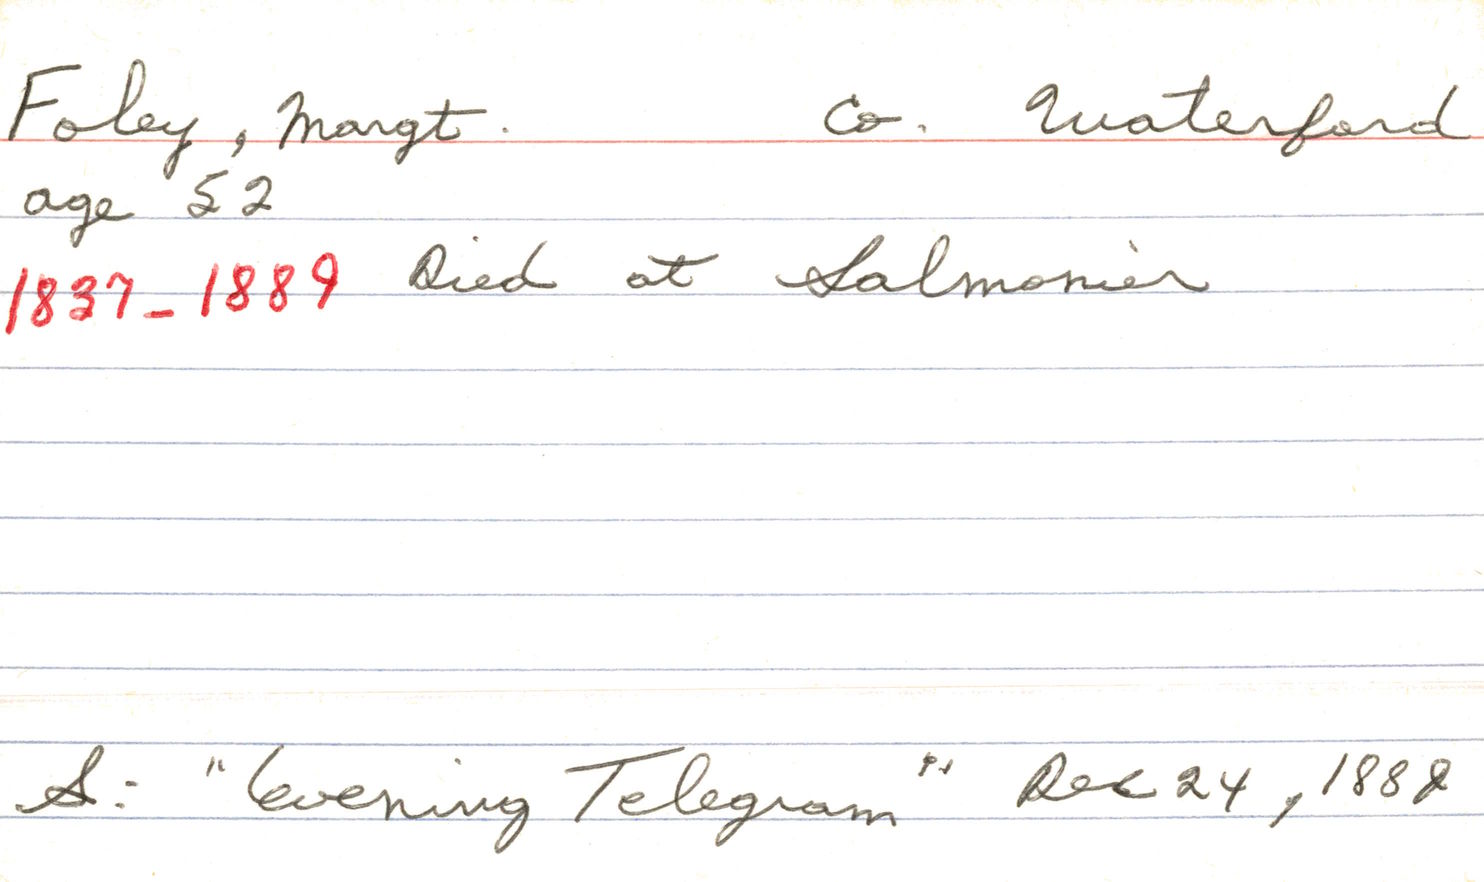 Foley, Margt. Co. Waterford
age 52
1837-1889 Died at Salmonier
S: "Evening Telegram" Dec 24, 1889